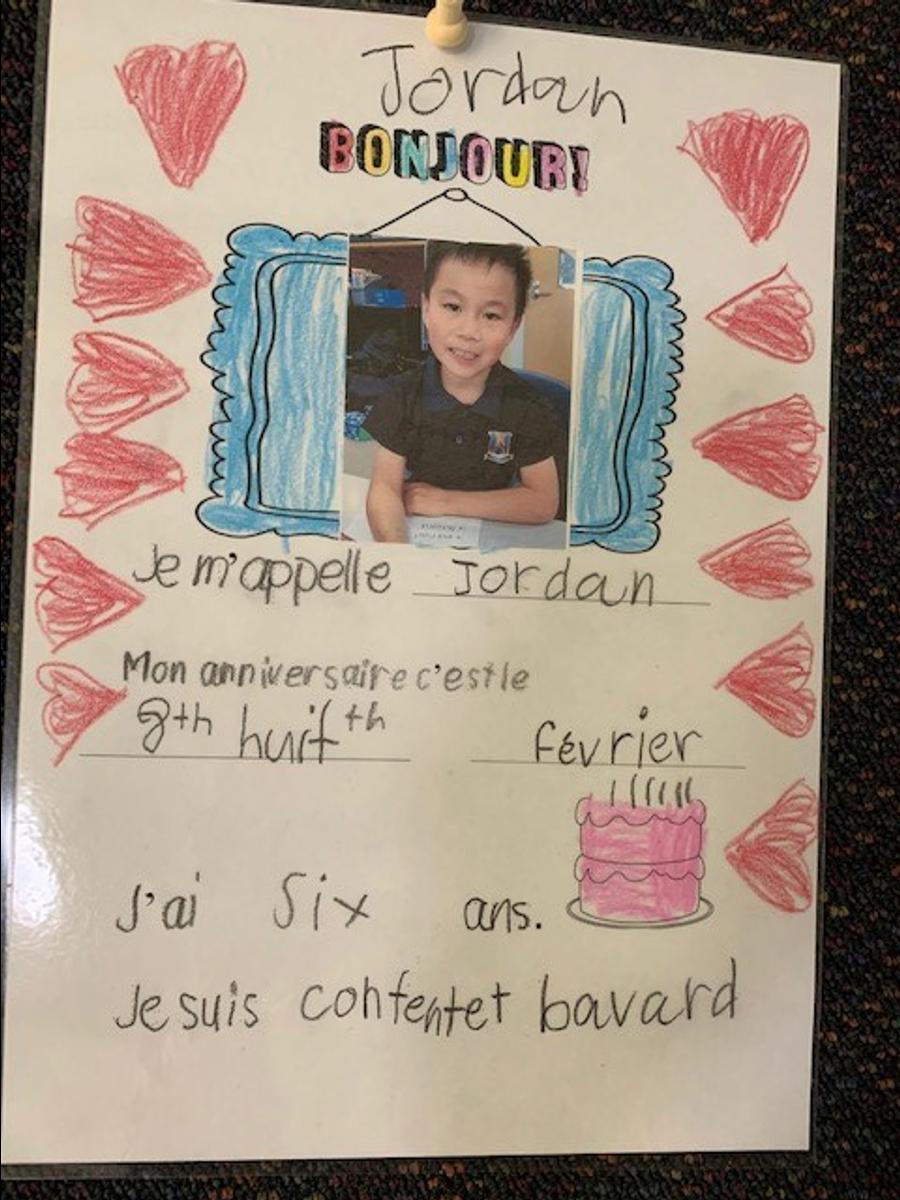 Jordan
BONJOUR!
Je m'appelle Jordan
Mon anniversaire c'est le
8th huit th février
J'ai Six ans.
Je suis content et bavard